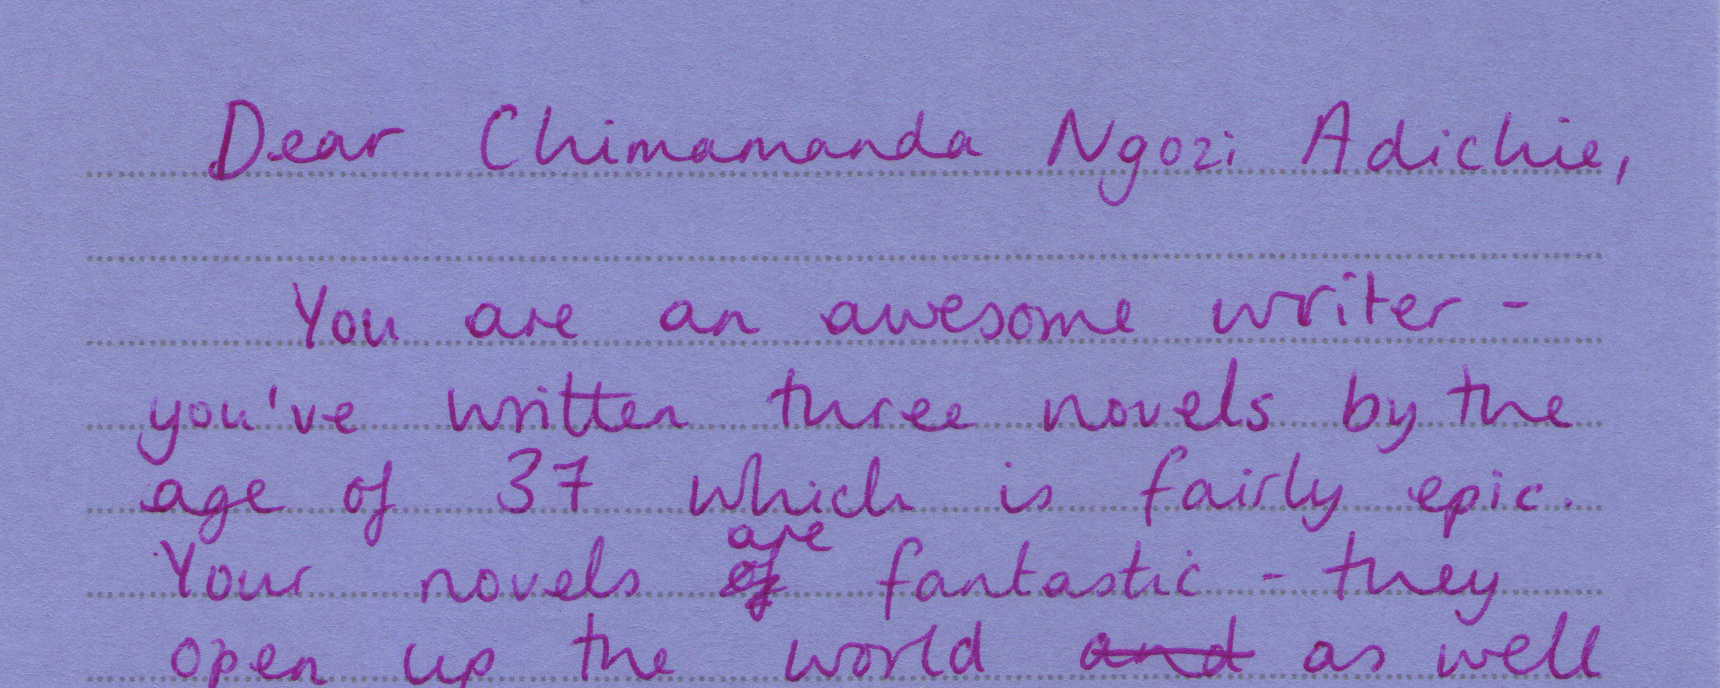 Dear Chimamanda Ngozi Adichie,
You are an awesome writer -
you've written three novels by the
age of 37 which is fairly epic.
Your novels of are fantastic - they
open up the world and as well